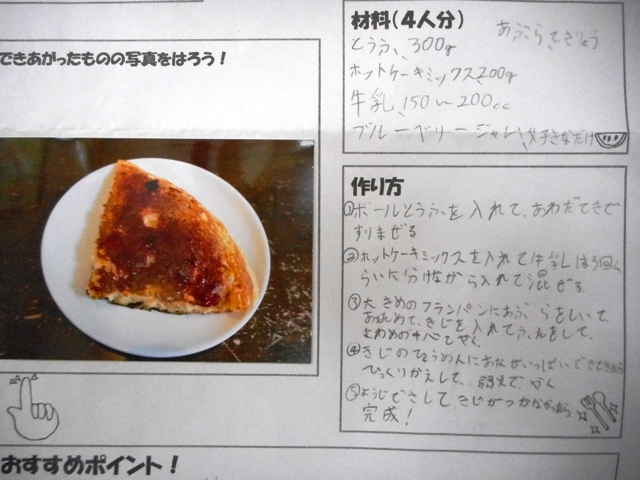 できあがったものの写真をはろう！
材料(4人分)
あぶら、てきりょう
とうふ、300g
ホットケーキミックス、200g
牛乳、150〜200cc
ブルーベリージャム、好きなだけ
作り方
①ボールとうふを入れて、あわだてきで
すりまぜる
②ホットケーキミックスを入れて牛乳は
らいに分けながら入れて混ぜる
③大きめのフランパンにあぶらをしいて、
あたためて、きじを入れてふたをして、
よわめの中心でやく
④きじのひょうめんにあながいっぱいできてきたら
ひっくりかえして、弱火で、やく
⑤ようじでさして、きじがつかなかったら
完成！
おすすめポイント！